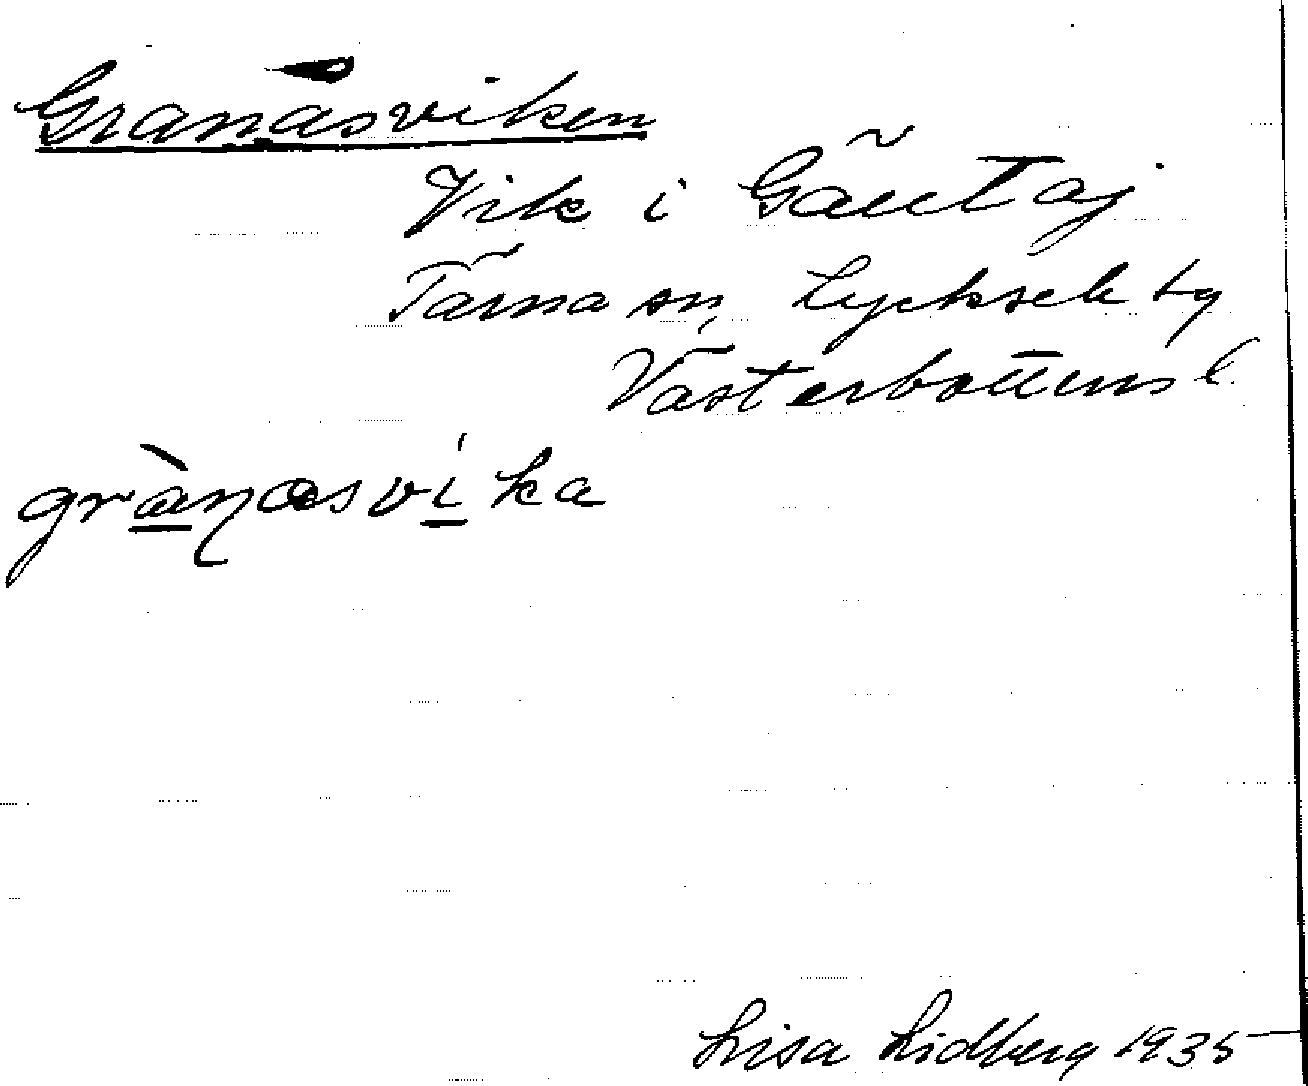 Granåsviken
Vik i Gäutaj
Tärna sn, Lycksele tg
Västerbottens l.
grànasvíka
Lisa Lidberg 1935